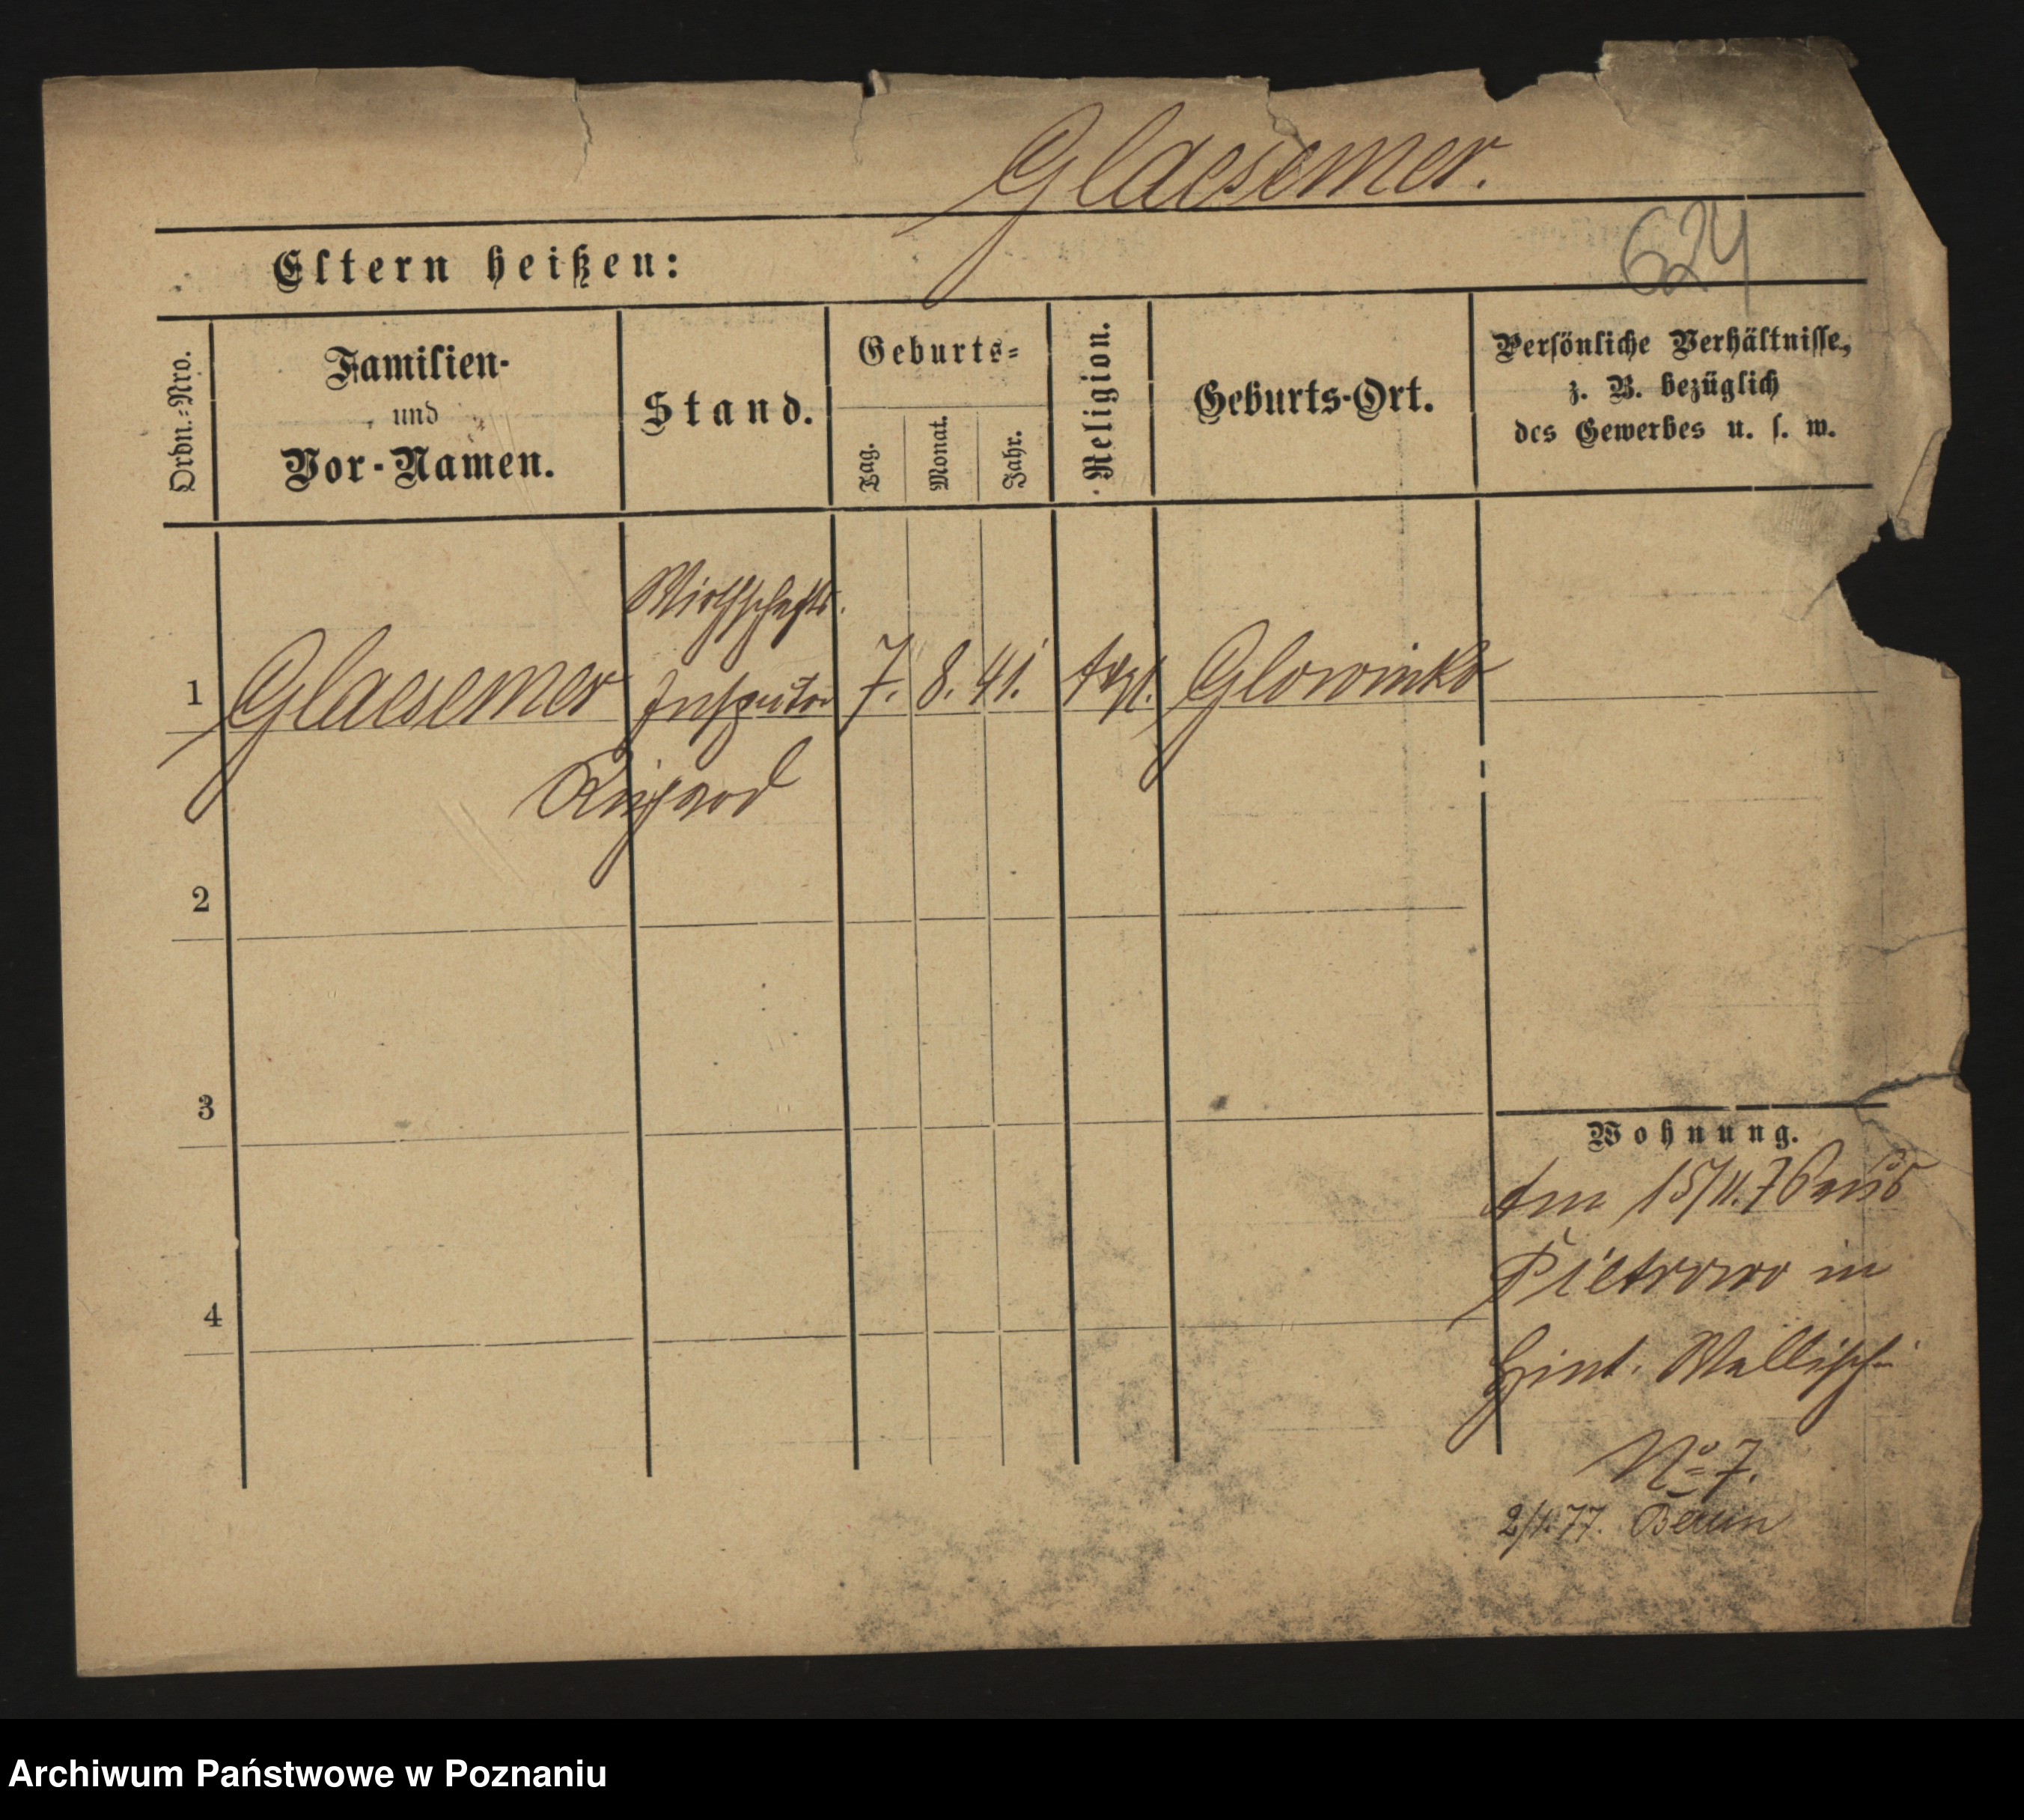 Glaesemer.
624
Eltern heißen:
Ordn.-Nro.
Familien-
und
Vor-Namen.
Stand.
Geburts-
Tag.
Monat.
Jahr.
Religion.
Geburts-Ort.
Persönliche Verhältnisse,
z. B. bezüglich
des Gewerbes u. s. w.
Wirthschafts.
1 Glaesemer Inspector 7. 8. 41. Glowinko
Richard
2
3
4
Wohnung.
Am 15/11. 76 aus
Pietrowo in
Hint. Wallischei
No 7.
2/1. 77.
Archiwum Państwowe w Poznaniu